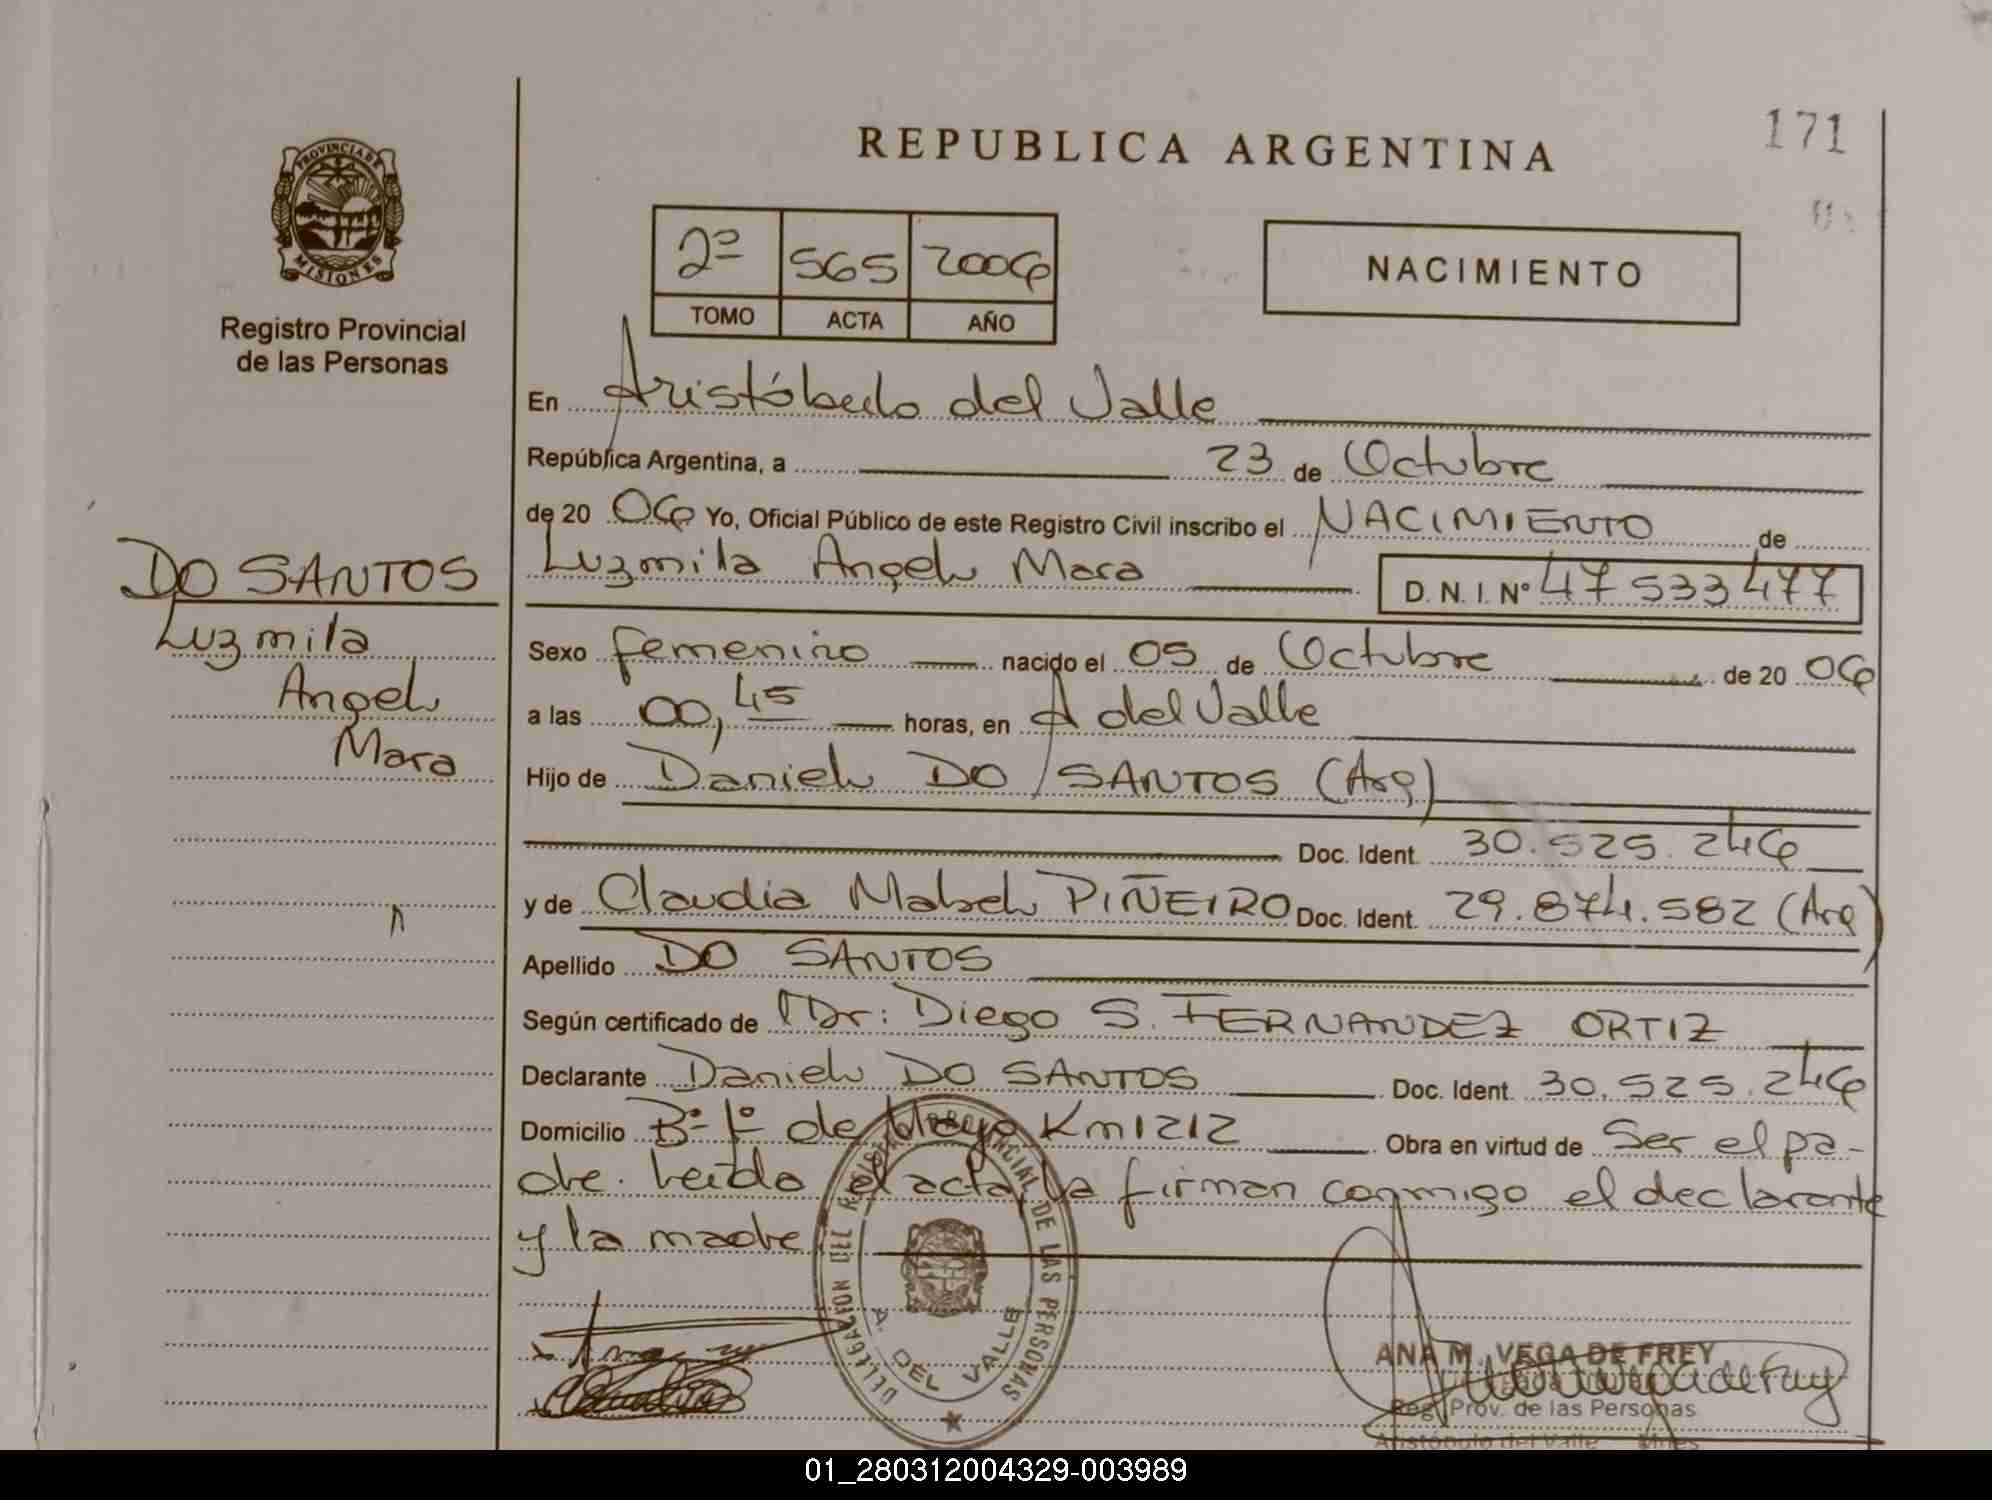 171
REPUBLICA ARGENTINA
PROVINCIA DE
MISIONES
Registro Provincial
de las Personas
2º 565 2006
TOMO ACTA AÑO
NACIMIENTO
En Aristóbulo del Valle
República Argentina, a 23 de Octubre
de 20 06 Yo, Oficial Público de este Registro Civil inscribo el NACIMIENTO de
Luzmila Angel Mara D. N. I. Nº 47533477
DO SANTOS
Luzmila
Angel
Mara
Sexo femenino nacido el 05 de Octubre de 20 06
a las 00,45 horas, en A del Valle
Hijo de Daniel DO SANTOS (Arg)
Doc. Ident. 30.525.246
y de Claudia Mabel PIÑEIRO Doc. Ident. 29.874.582 (Arg)
Apellido DO SANTOS
Según certificado de Dr: Diego S. FERNANDEZ ORTIZ
Declarante Daniel DO SANTOS Doc. Ident. 30.525.246
Domicilio Bº 1º de Mayo Km1212 Obra en virtud de Ser el pa-
dre. Leída el acta, la firman conmigo el declarante
y la madre
DELEGACION DEL REGISTRO PROVINCIAL DE LAS PERSONAS
A. DEL VALLE
ANA M. VEGA DE FREY
Reg. Prov. de las Personas
Aristóbulo del Valle Mnes
01_280312004329-003989